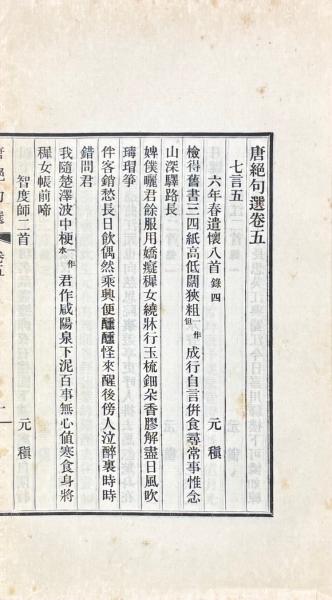 唐絕句選卷五
七言五
六年春遣懷八首 錄四 元稹
檢得舊書三四紙高低闊狹粗一作但成行自言併食尋常事惟念
山深驛路長
婢僕曬君餘服用嬌癡稺女繞牀行玉梳鈿朶香膠解盡日風吹
瑇瑁箏
伴客銷愁長日飲偶然乘興便醺醺怪來醒後傍人泣醉裏時時
錯問君
我隨楚澤波中梗一作水君作咸陽泉下泥百事無心値寒食身將
稺女帳前啼
智度師二首 元稹